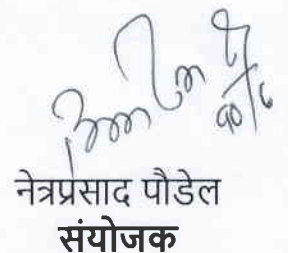 १०/६
नेत्रप्रसाद पौडेल
संयोजक